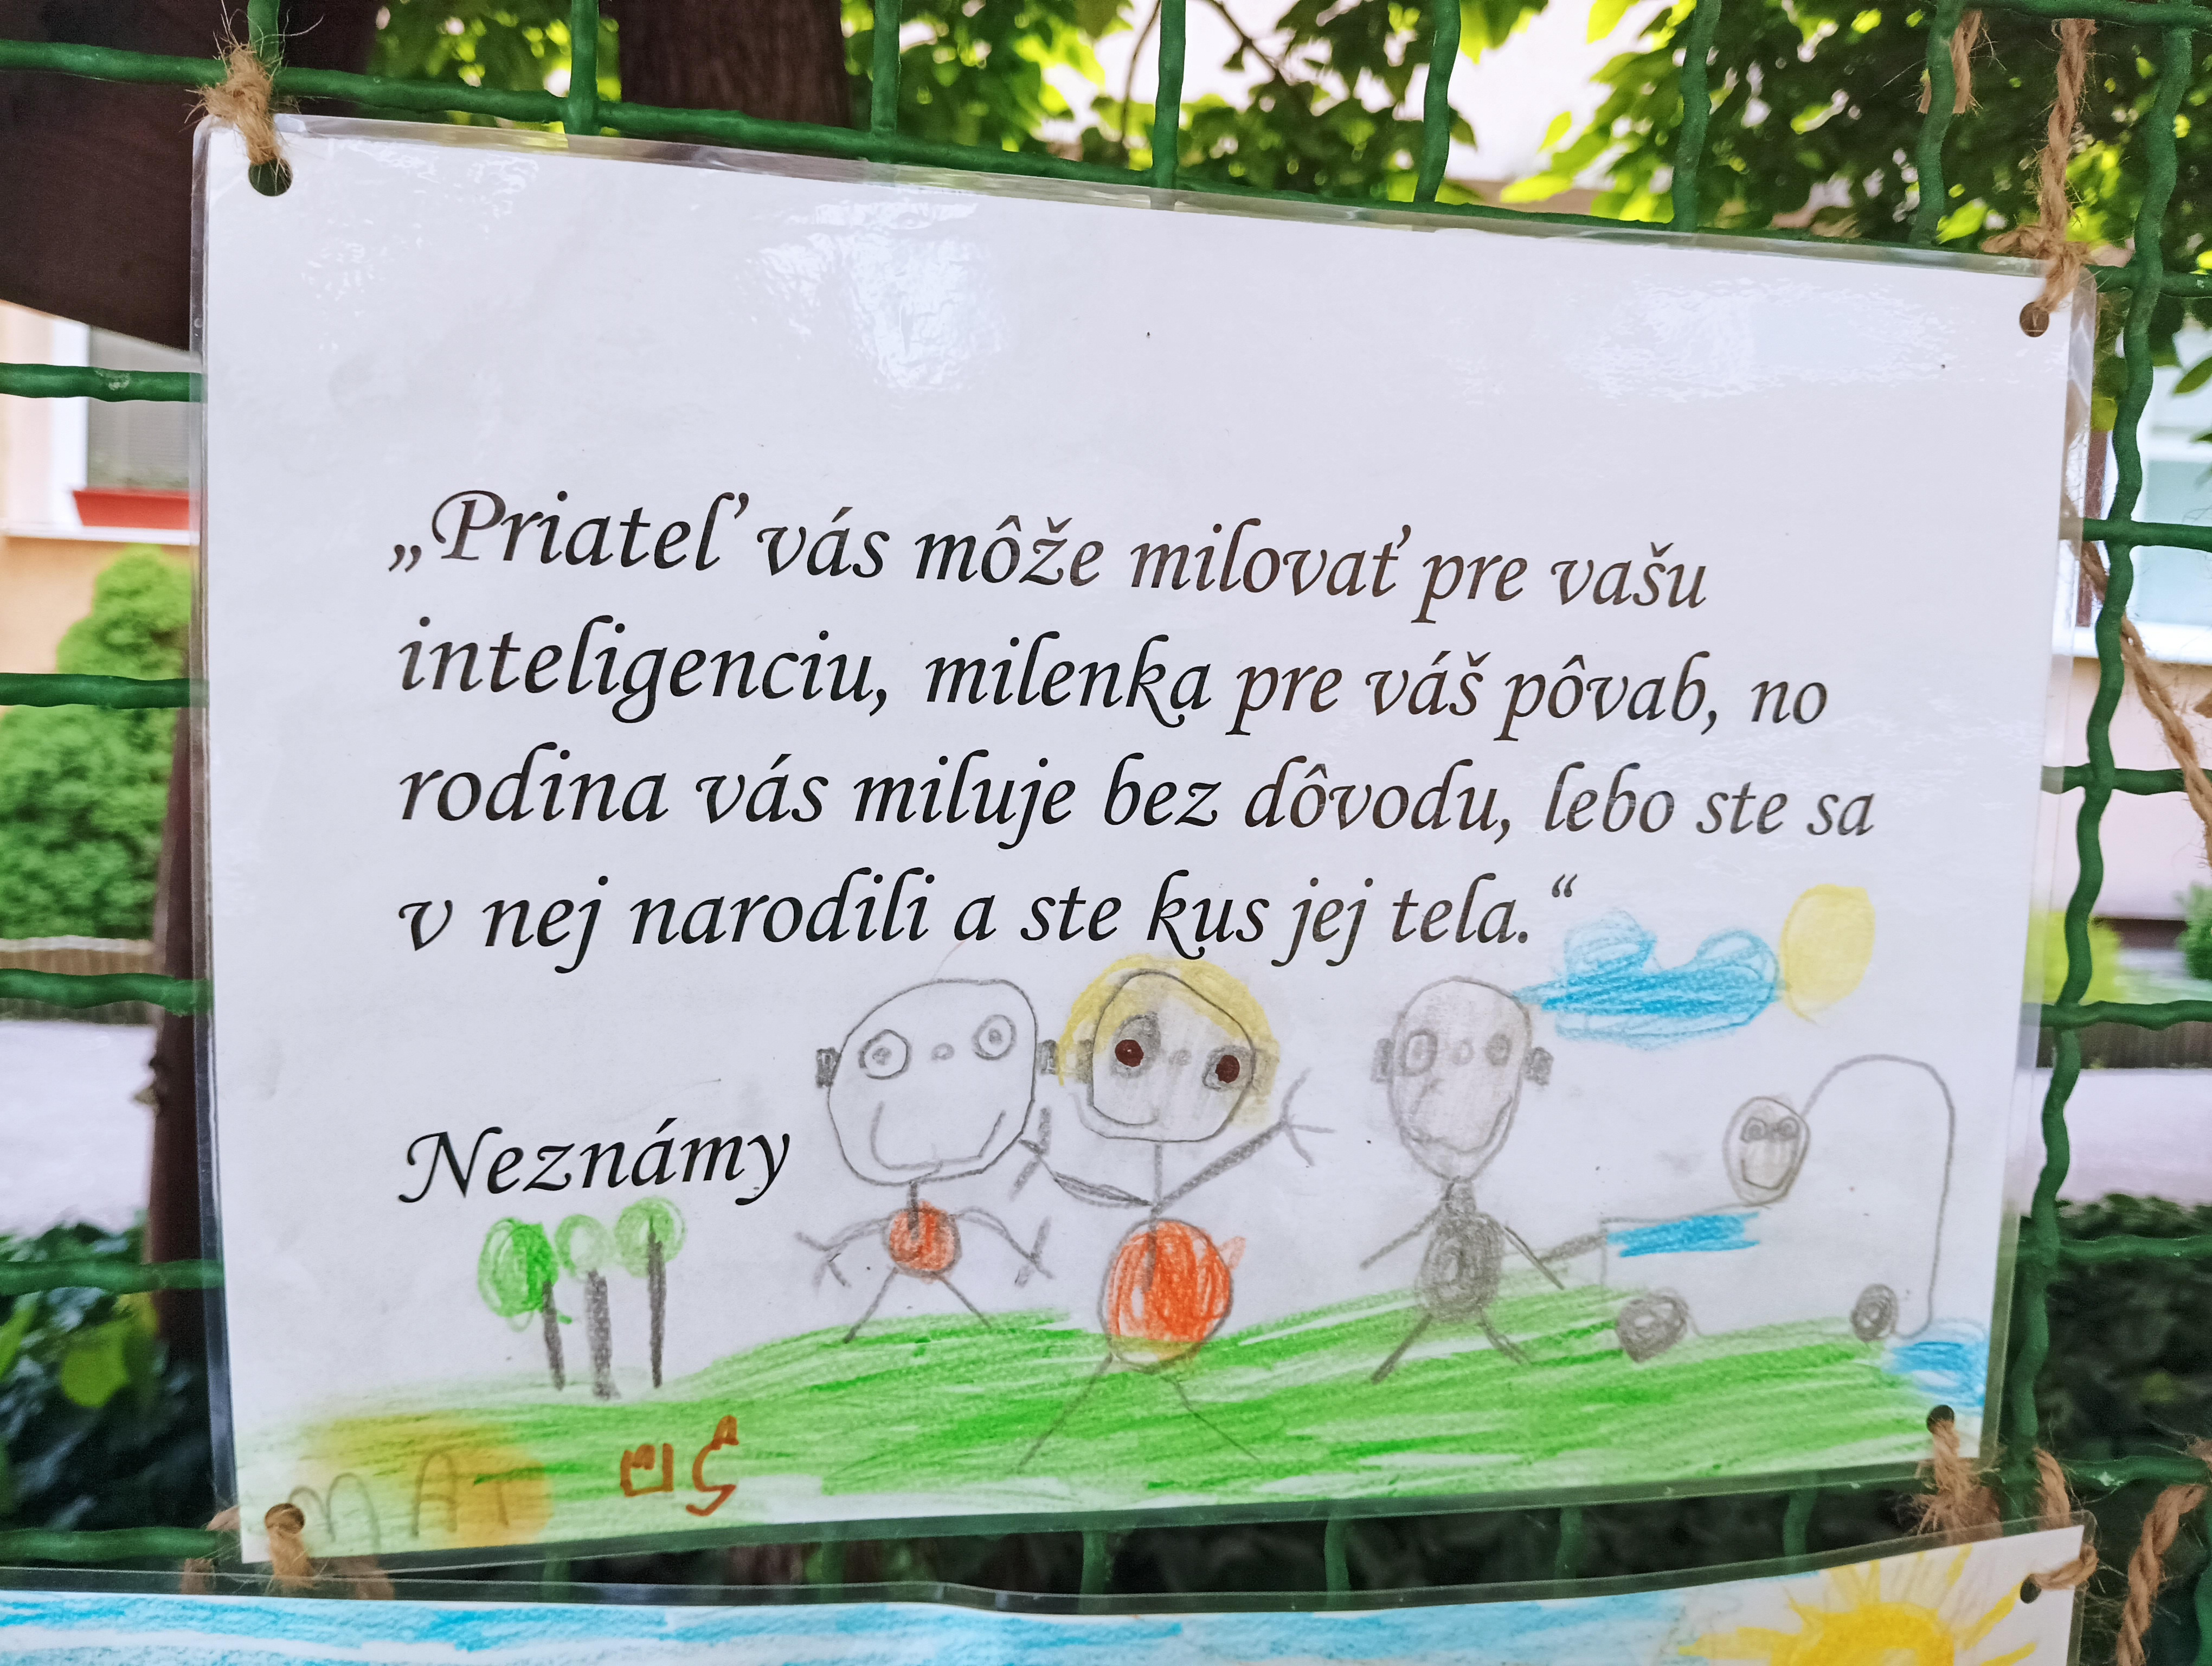 „Priateľ vás môže milovať pre vašu
inteligenciu, milenka pre váš pôvab, no
rodina vás miluje bez dôvodu, lebo ste sa
v nej narodili a ste kus jej tela.“
Neznámy
MAT